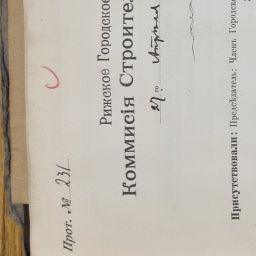 Прот. № 231
Рижское Городское
Коммисія Строите
27 го Апрѣля
Присутствовали: Предсѣдатель: Членъ Городска